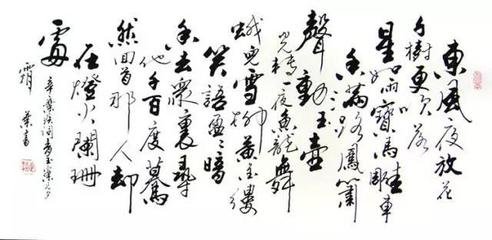 東風夜放花
千樹更吹落
星如雨寶馬雕車
香滿路鳳簫
聲動玉壺
光轉一夜魚龍舞
蛾兒雪柳黃金縷
笑語盈〻暗
香去衆裏尋
他千百度驀
然回首那人卻
在燈火闌珊
處
辛棄疾詞青玉案元夕
書